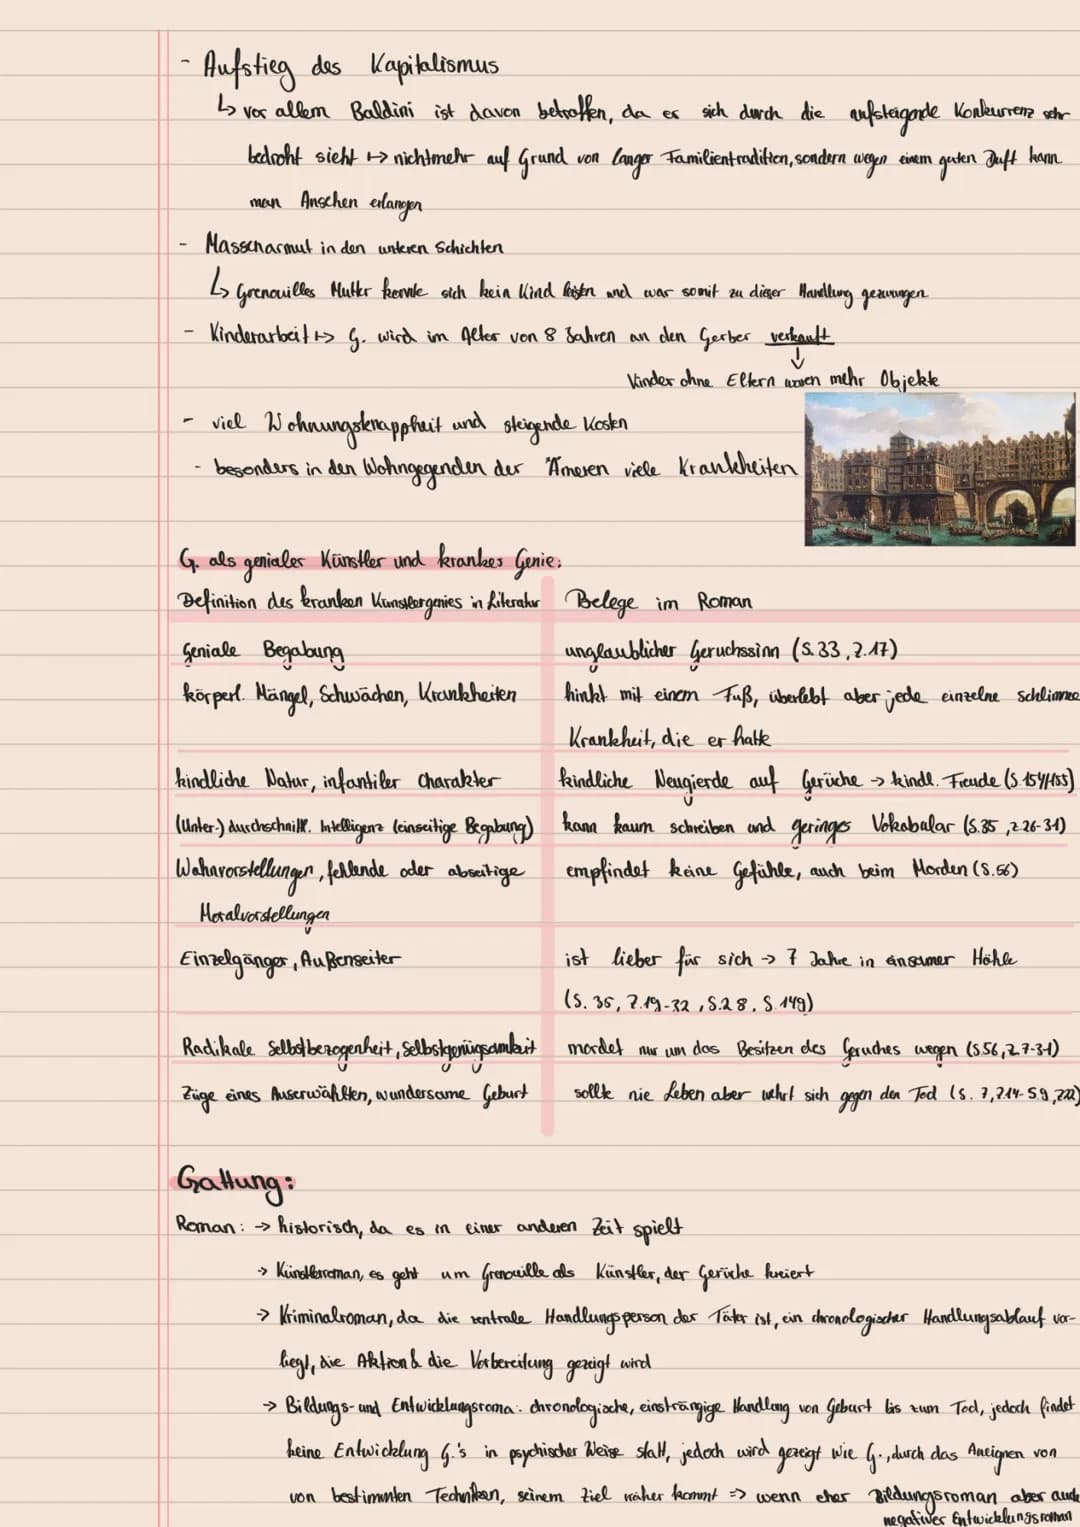 - Aufstieg des Kapitalismus
↳ vor allem Baldini ist davon betroffen, da er sich durch die aufsteigende Konkurrenz sehr
bedroht sieht ↦ nichtmehr auf Grund von langer Familientradition, sondern wegen einem guten Duft kann
man Ansehen erlangen
- Massenarmut in den unteren Schichten
↳ Grenouilles Mutter konnte sich kein Kind leisten und war somit zu dieser Handlung gezwungen
- Kinderarbeit ↦ G. wird im Alter von 8 Jahren an den Gerber verkauft
↓
Kinder ohne Eltern waren mehr Objekte
- viel Wohnungsknappheit und steigende Kosten
- besonders in den Wohngegenden der Ämeren viele Krankheiten
G. als genialer Künstler und krankes Genie:
Definition des kranken Künstlergenies in Literatur Belege im Roman
Geniale Begabung unglaublicher Geruchssinn (S.33, Z.17)
körperl. Mängel, Schwächen, Krankheiten hinkt mit einem Fuß, überlebt aber jede einzelne schlimme
Krankheit, die er hatte
kindliche Natur, infantiler Charakter kindliche Neugierde auf Gerüche → kindl. Freude (S.154/155)
(Unter-) durchschnitt. Intelligenz (einseitige Begabung) kann kaum schreiben und geringes Vokabular (S.35, Z.26-31)
Wahnvorstellungen, fehlende oder abseitige empfindet keine Gefühle, auch beim Morden (S.56)
Moralvorstellungen
Einzelgänger, Außenseiter ist lieber für sich → 7 Jahre in einsamer Höhle
(S. 35, Z.19-32, S.28, S.149)
Radikale Selbstbezogenheit, Selbstgenügsamkeit mordet nur um das Besitzen des Geruches wegen (S.56, Z.7-31)
Züge eines Auserwählten, wundersame Geburt sollte nie Leben aber wehrt sich gegen den Tod (S. 7, Z.14- S.9, Z.22)
Gattung:
Roman: → historisch, da es in einer anderen Zeit spielt
→ Künstlerroman, es geht um Grenouille als Künstler, der Gerüche kreiert
→ Kriminalroman, da die zentrale Handlungsperson der Täter ist, ein chronologischer Handlungsablauf vor-
liegt, die Aktion & die Vorbereitung gezeigt wird
→ Bildungs- und Entwicklungsroma: chronologische, einsträngige Handlung von Geburt bis zum Tod, jedoch findet
keine Entwicklung G.'s in psychischer Weise statt, jedoch wird gezeigt wie G., durch das Aneignen von
von bestimmten Techniken, seinem Ziel näher kommt ⇒ wenn eher Bildungsroman aber auch
negativer Entwicklungsroman